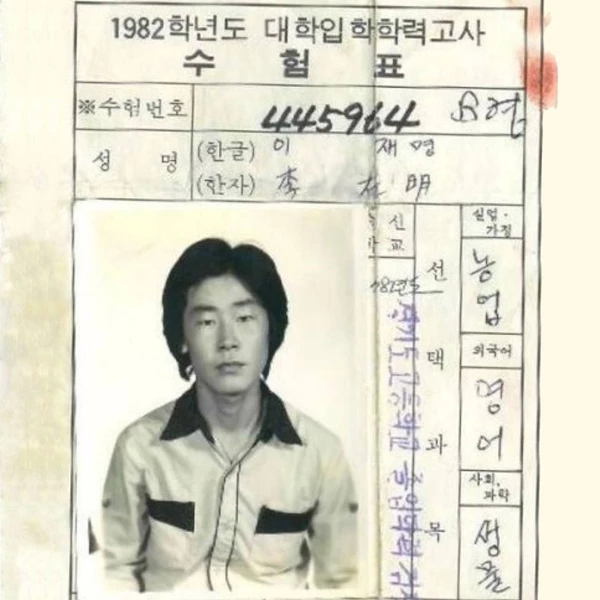 1982학년도 대학입학학력고사
수 험 표
※수험번호 445964
성 명 (한글) 이 재 명
(한자) 李 在 明
선 택 과 목
실업·
가정
농업
외국어
영어
사회,
과학
생물